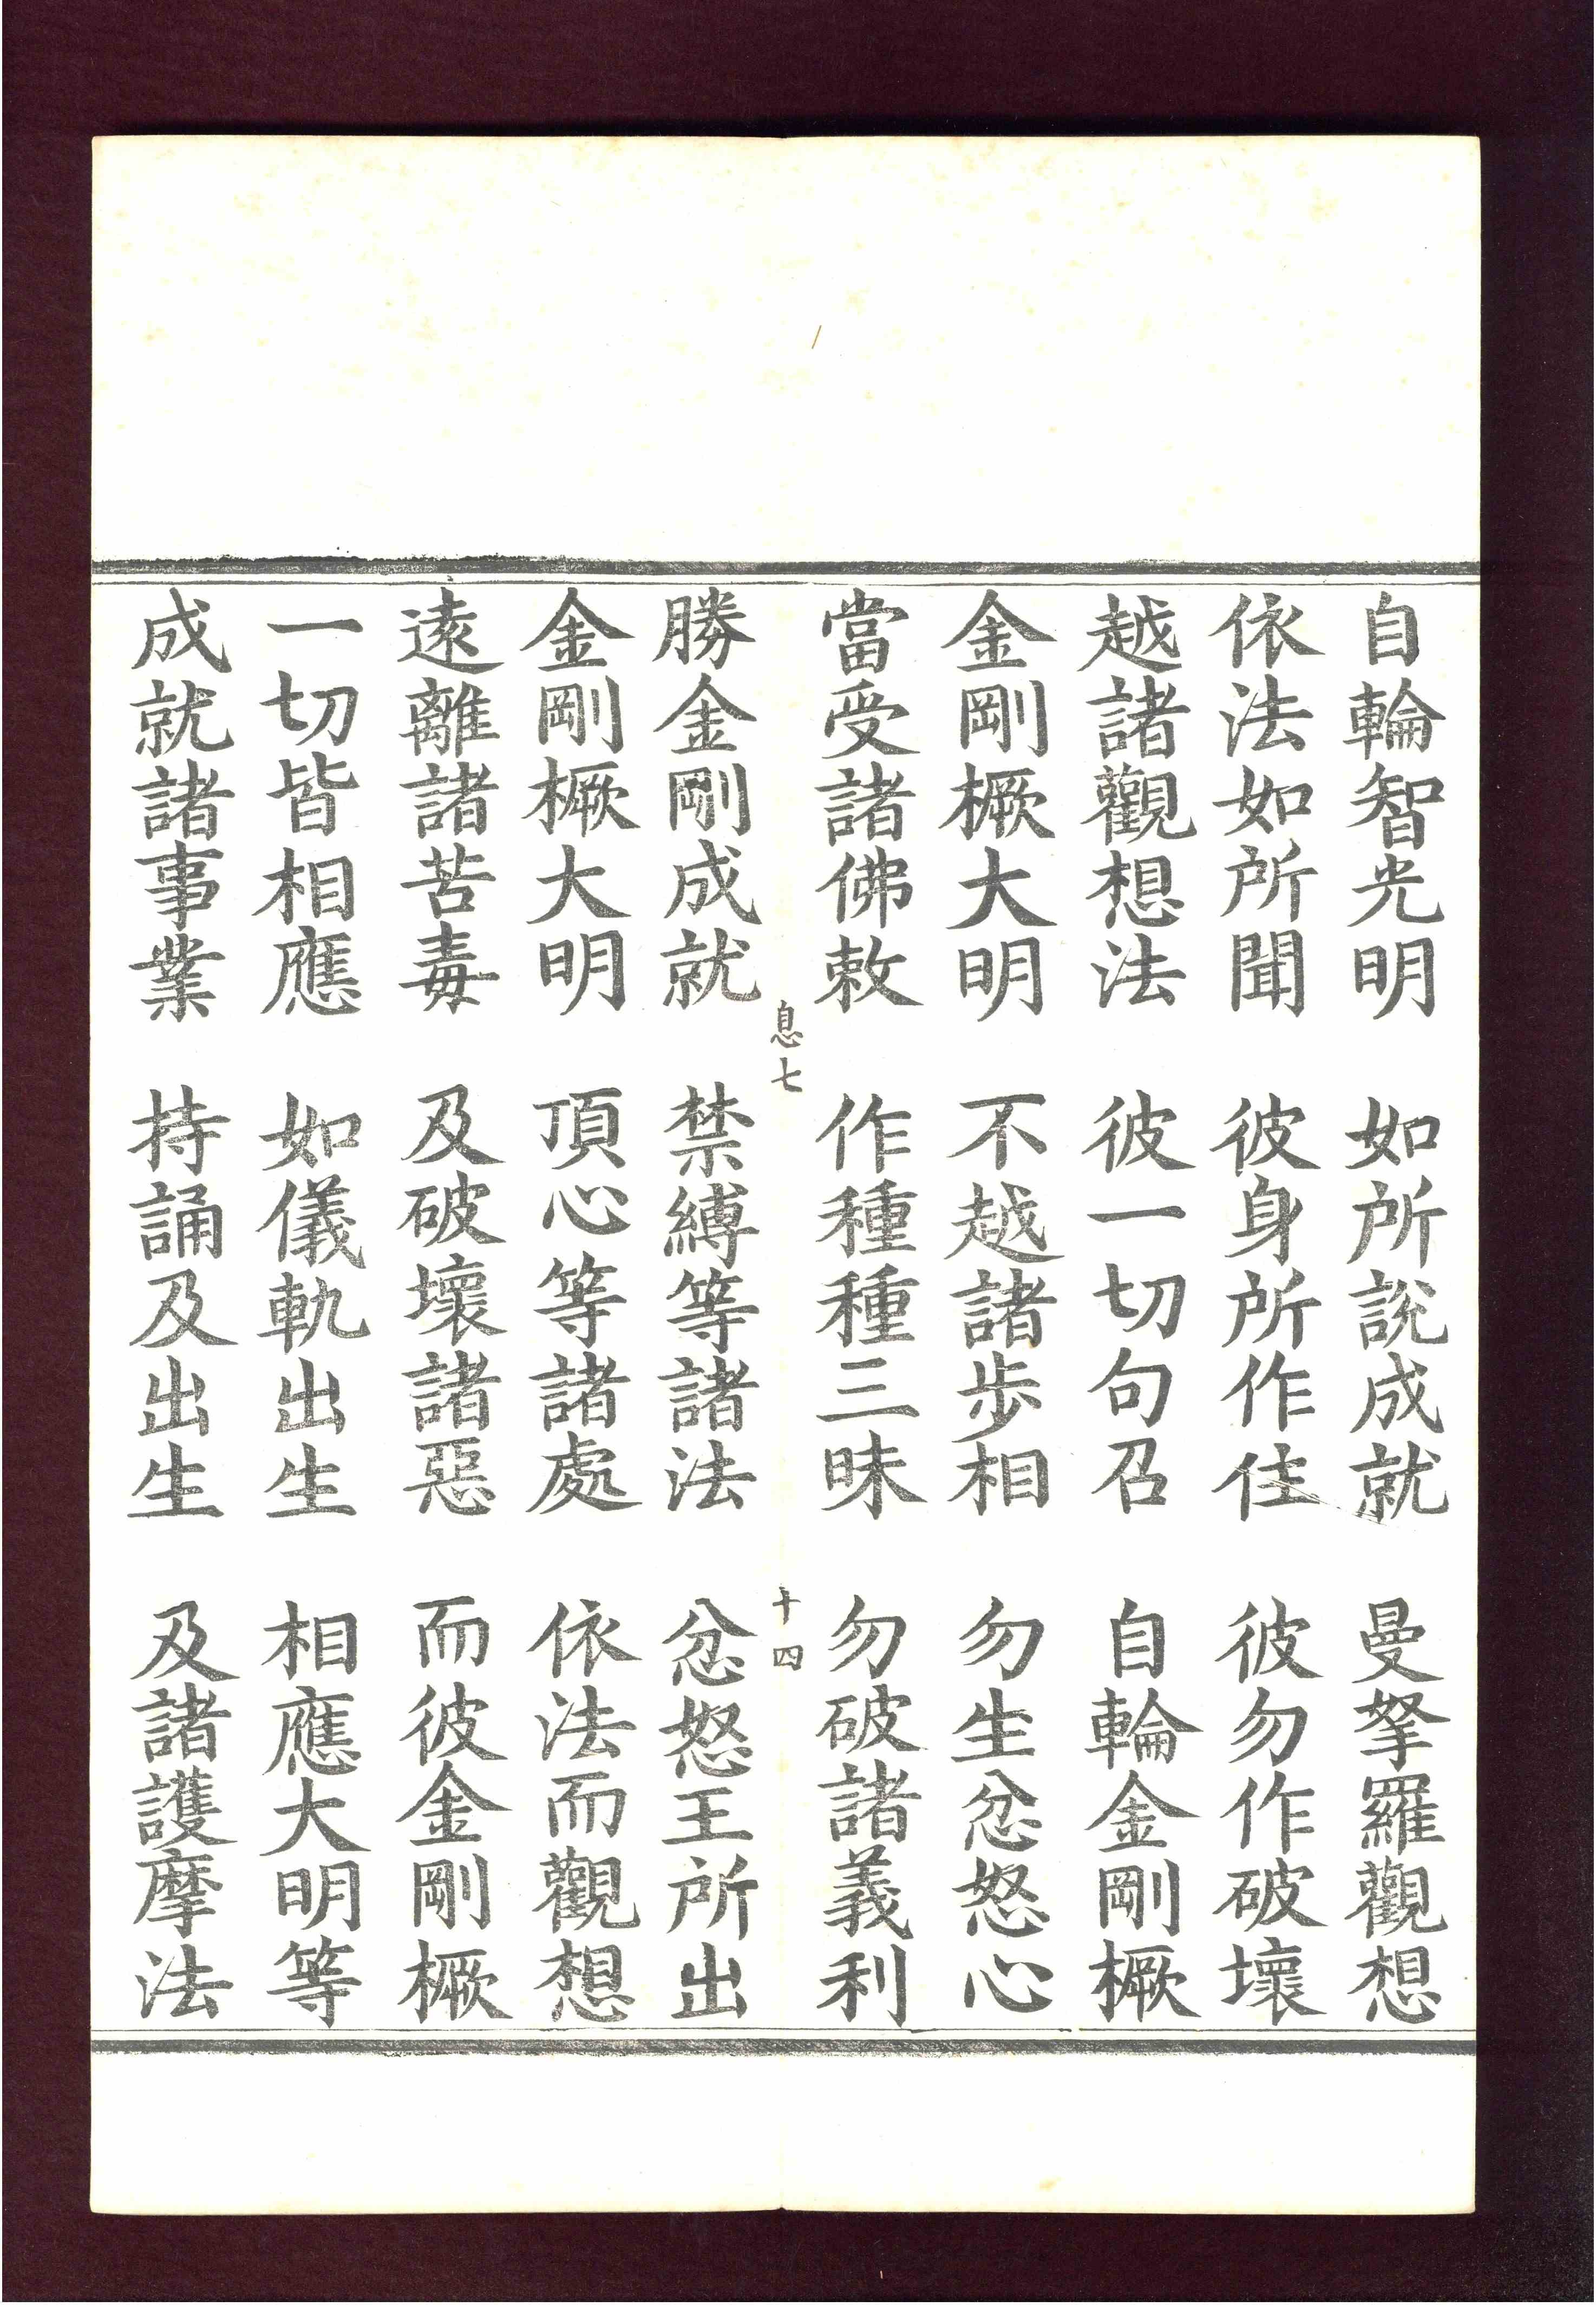 自輪智光明　如所說成就　曼拏羅觀想
依法如所聞　彼身所作住　彼勿作破壞
越諸觀想法　彼一切句召　自輪金剛橛
金剛橛大明　不越諸步相　勿生忿怒心
當受諸佛敕　作種種三昧　勿破諸義利
息七　十四
勝金剛成就　禁縛等諸法　忿怒王所出
金剛橛大明　頂心等諸處　依法而觀想
遠離諸苦毒　及破壞諸惡　而彼金剛橛
一切皆相應　如儀軌出生　相應大明等
成就諸事業　持誦及出生　及諸護摩法